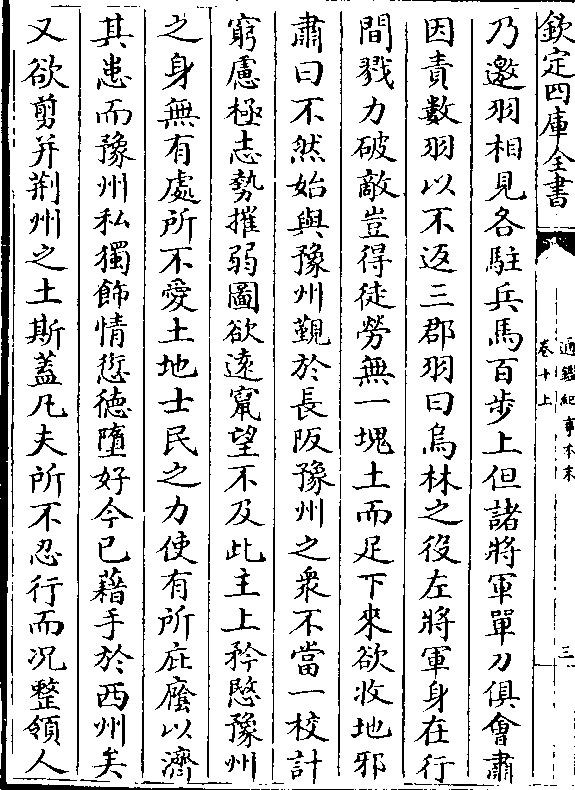 欽定四庫全書
通鑑紀事本末
卷十上
三
乃邀羽相見各駐兵馬百步上但諸將軍單刀俱會肅
因責數羽以不返三郡羽曰烏林之役左將軍身在行
間戮力破敵豈得徒勞無一塊土而足下來欲收地邪
肅曰不然始與豫州觀於長阪豫州之衆不當一校計
窮慮極志勢摧弱圖欲逺竄望不及此主上矜愍豫州
之身無有處所不愛土地士民之力使有所庇廕以濟
其患而豫州私獨飾情愆德墮好今已藉手於西州矣
又欲剪并荆州之土斯蓋凡夫所不忍行而况整領人